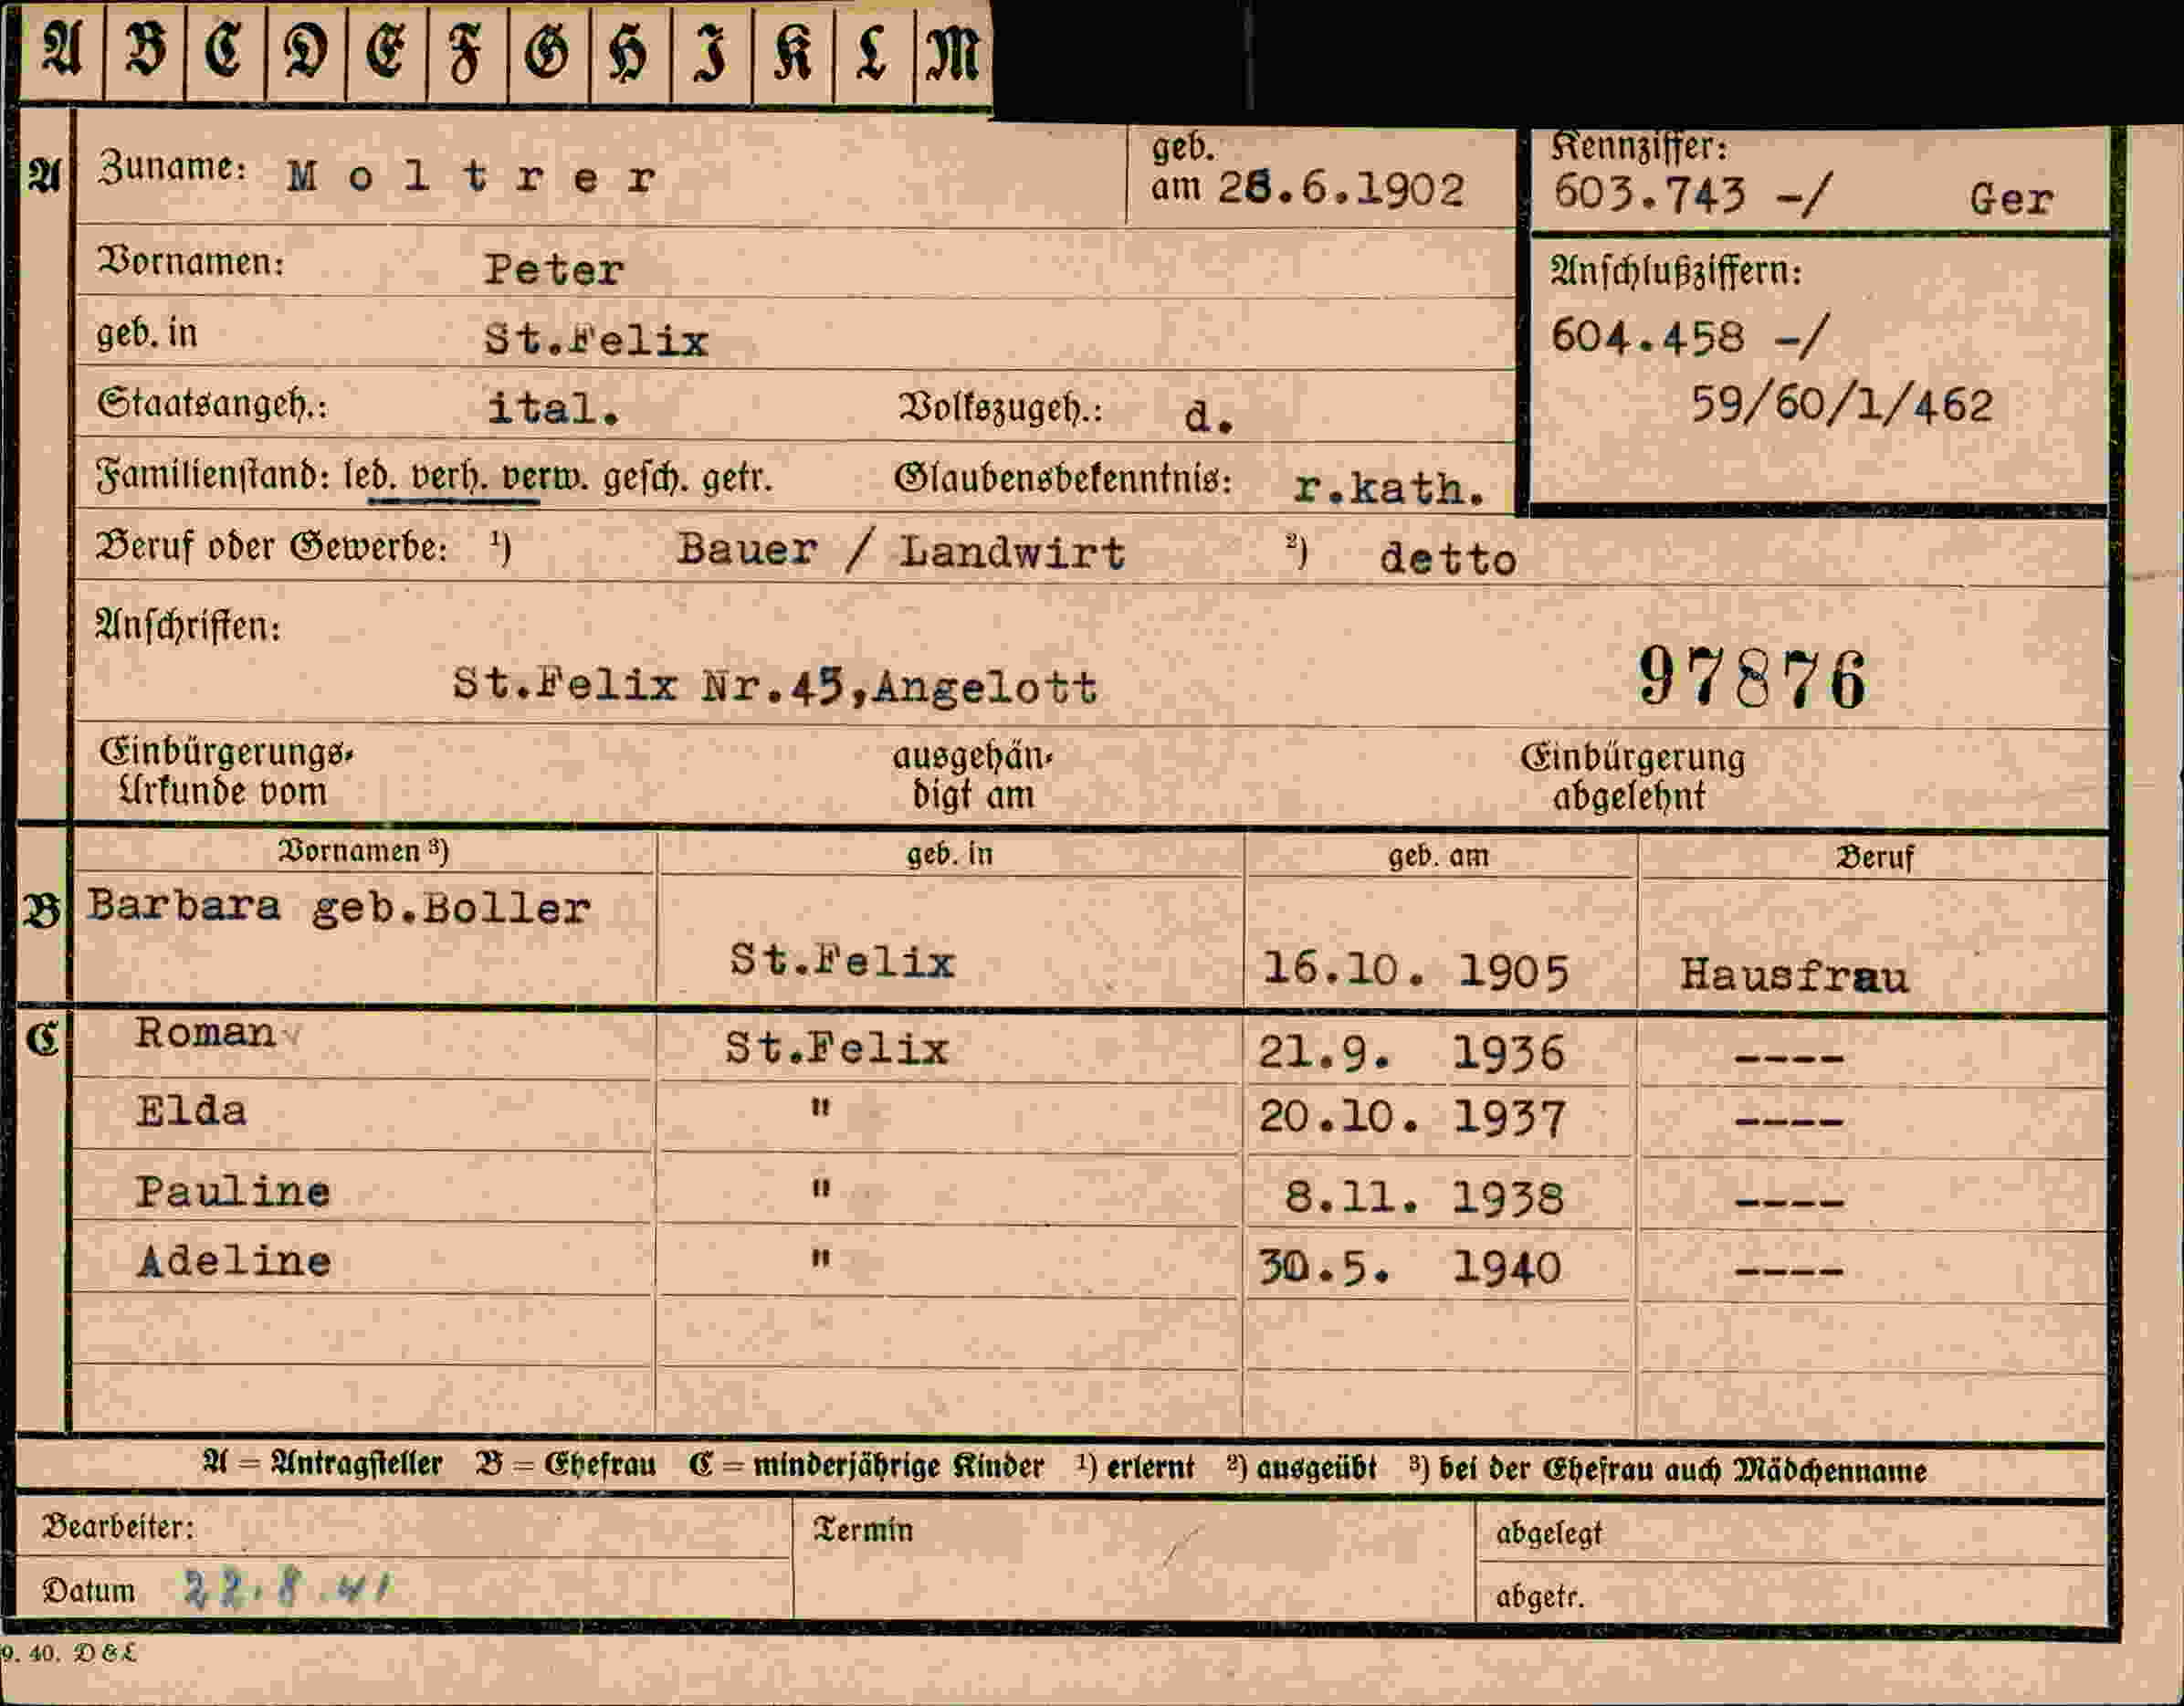 A B C D E F G H I K L M
A Zuname: Moltrer geb. am 28.6.1902 Kennziffer: 603.743 -/ Ger
Vornamen: Peter Anschlußziffern:
geb. in St.Felix 604.458 -/
Staatsangeh.: ital. Volkszugeh.: d. 59/60/1/462
Familienstand: led. verh. verw. gesch. getr. Glaubensbekenntnis: r.kath.
Beruf oder Gewerbe: ¹) Bauer / Landwirt ²) detto
Anschriften:
St.Felix Nr.45,Angelott 97876
Einbürgerungs- ausgehän- Einbürgerung
Urkunde vom digt am abgelehnt
Vornamen ³) geb. in geb. am Beruf
B Barbara geb.Boller
St.Felix 16.10. 1905 Hausfrau
C Roman St.Felix 21.9. 1936 ----
Elda " 20.10. 1937 ----
Pauline " 8.11. 1938 ----
Adeline " 30.5. 1940 ----
A = Antragsteller B = Ehefrau C = minderjährige Kinder ¹) erlernt ²) ausgeübt ³) bei der Ehefrau auch Mädchenname
Bearbeiter: Termin abgelegt
Datum 22.8.41 abgetr.
9. 40. D&L